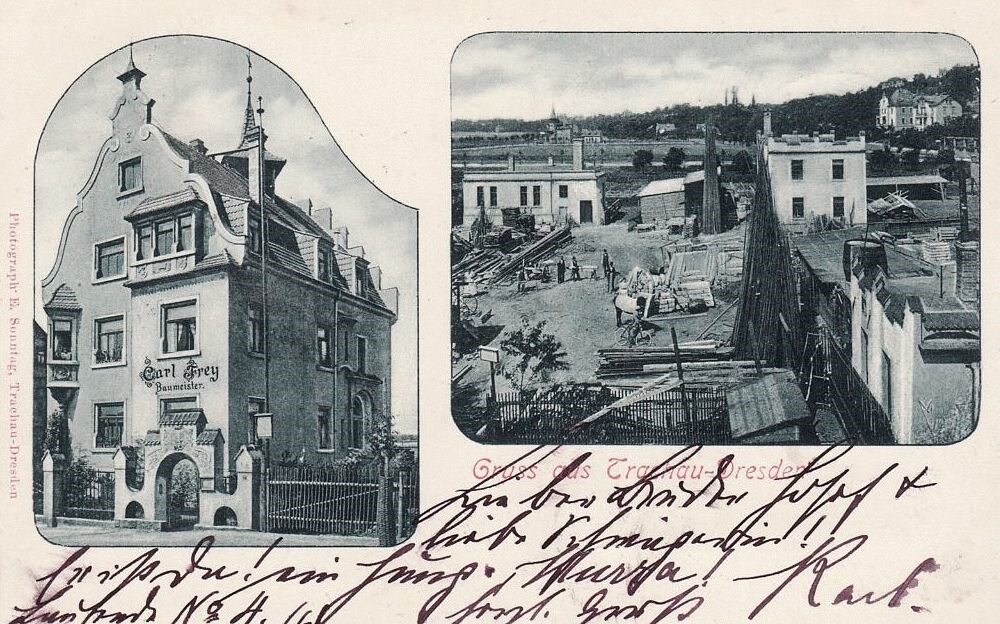 Carl Frey
Baumeister.
Photograph E. Sonntag, Trachau-Dresden
Gruss aus Trachau-Dresden
Lieber Bruder Josef &
liebe Schwägerin!
Er ist da! ein Hurra!
No 4. herzl. Gruß Karl.